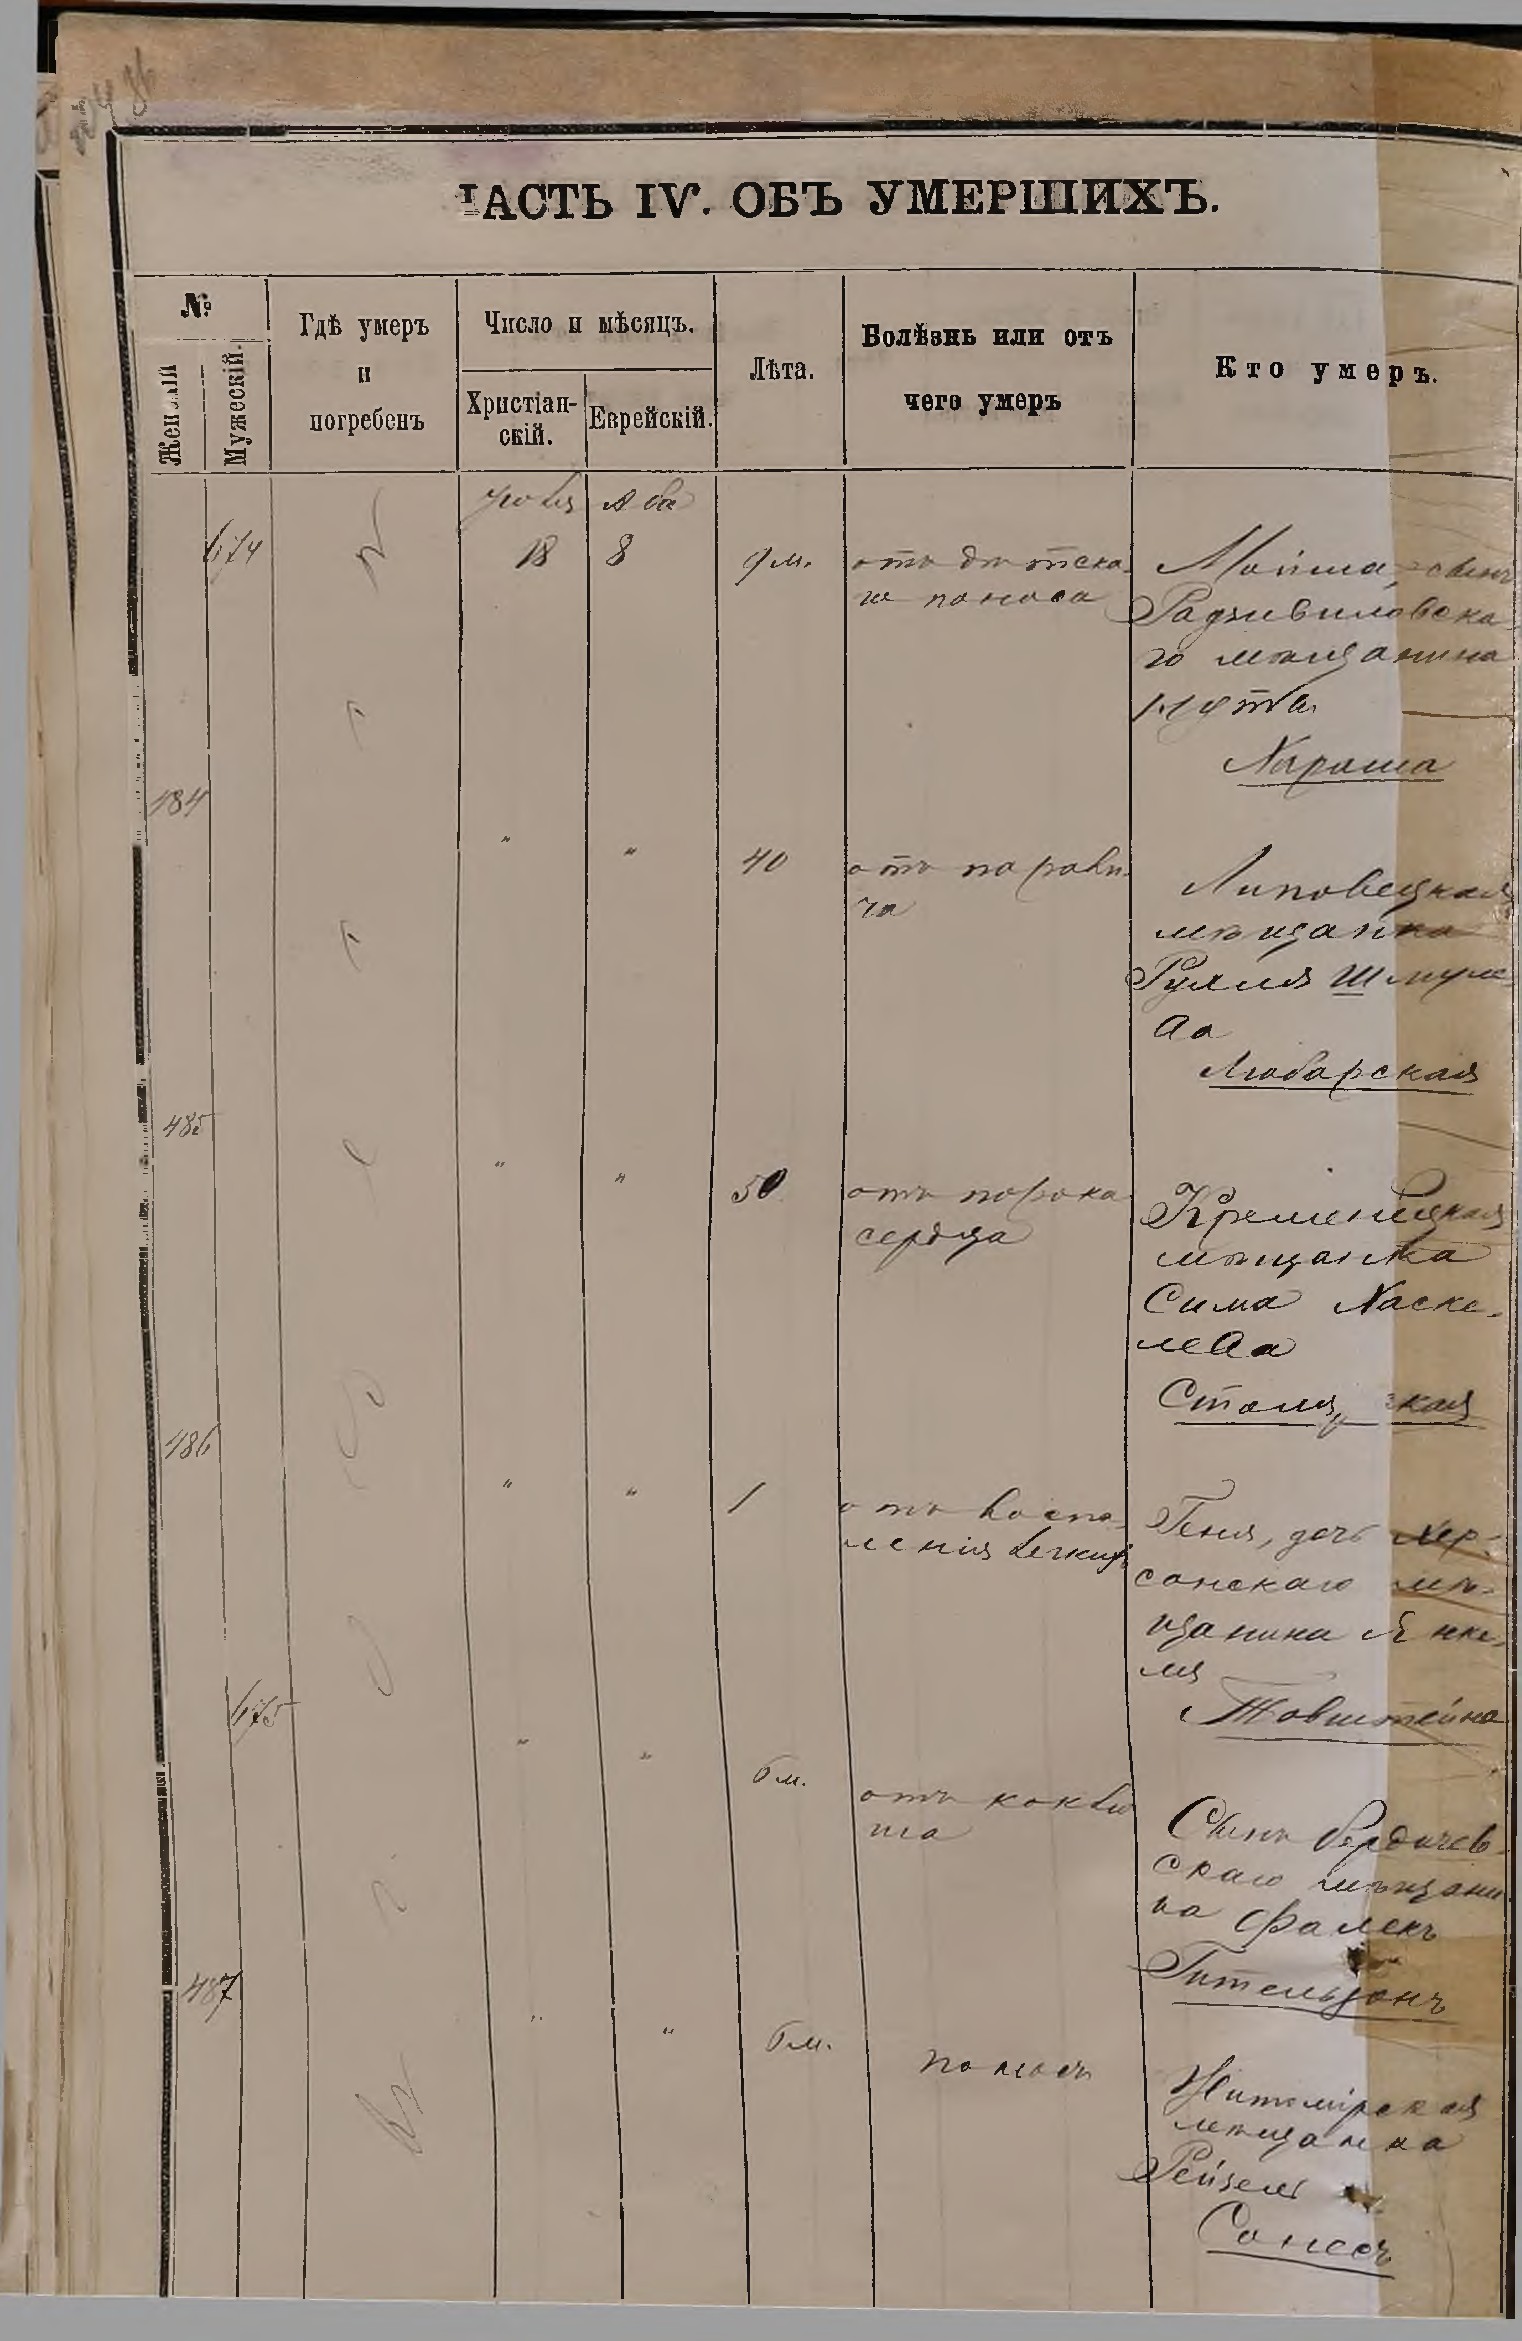 ЧАСТЬ IV. ОБЪ УМЕРШИХЪ.
№
Женскій
Мужескій.
Гдѣ умеръ
и
погребенъ
Число и мѣсяцъ.
Христіан-
скій.
Еврейскій.
Лѣта.
Болѣзнь или отъ
чего умеръ
Кто умеръ.
Юля Ава
674 18 8 9 м. отъ дѣтска-
го поноса
Мойша, сынъ
Радзивиловска-
го мѣщанина
Хараша
484 " " 40 отъ парали-
ча
Липовецкая
мѣщанка
Рухля Шмуле-
ва
Любарская
485 " " 50 отъ порока
сердца
Кременецкая
мѣщанка
Сима Хаске-
лева
Столярская
486 " " 1 отъ воспа-
ленія легкихъ
Геня, дочь хер-
сонскаго мѣ-
щанина Янке-
ля
Товштейна
675 " " 6 м. отъ коклю
ша
Сынъ бердичев-
скаго мѣщани
на Фалекъ
Гительзонъ
487 " " 6 м. поносъ
Житомірская
мѣщанка
Рейзель
Сонесъ